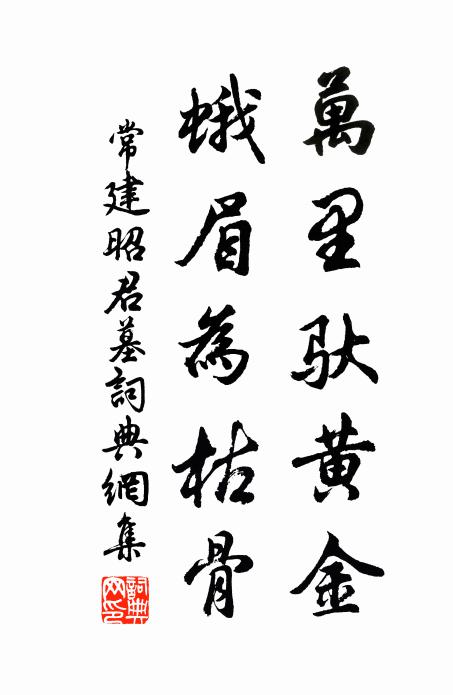 萬里馱黃金
蛾眉為枯骨
常建昭君墓詞典網集
詞典網印